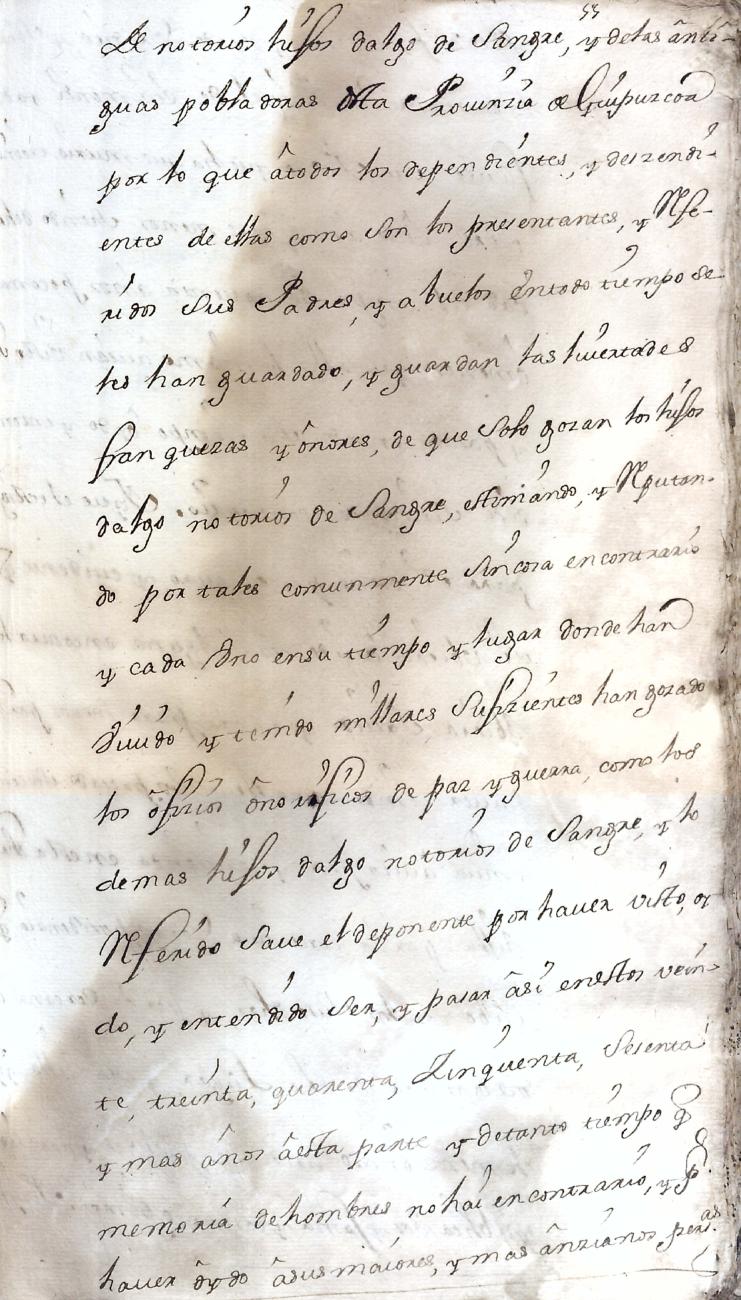 55
De notorios hijos dalgo de Sangre, y delas anti-
guas pobladoras desta Provinzia de Guipuzcoa
por lo que âtodos los dependientes, y deszendi-
entes de ellas como son los presentantes, y Refe-
ridos sus Padres, y abuelos êntodo tiempo se
les han guardado, y guardan las livertades
franquezas y ônores, de que solo gozan los hijos
dalgo notorios de Sangre, estimando, y Reputan-
do por tales comunmente sincosa encontrario
y cada Uno ensu tiempo y lugar donde han
Vivido y tenido millares Sufizientes han gozado
los ôfizios ônorificos de paz y guerra, como los
demas hijos dalgo notorios de Sangre, y lo
Referido save el deponente por haver visto, oi
do, y entendido ser, y pasar âsi enestos vein-
te, treinta, quarenta, Zinquenta, Sesenta
y mas años âesta parte y detanto tiempo q
memoria dehombres nohai encontrario, y p.
haver ôydo âsus maiores, y mas ânzianos pers.as